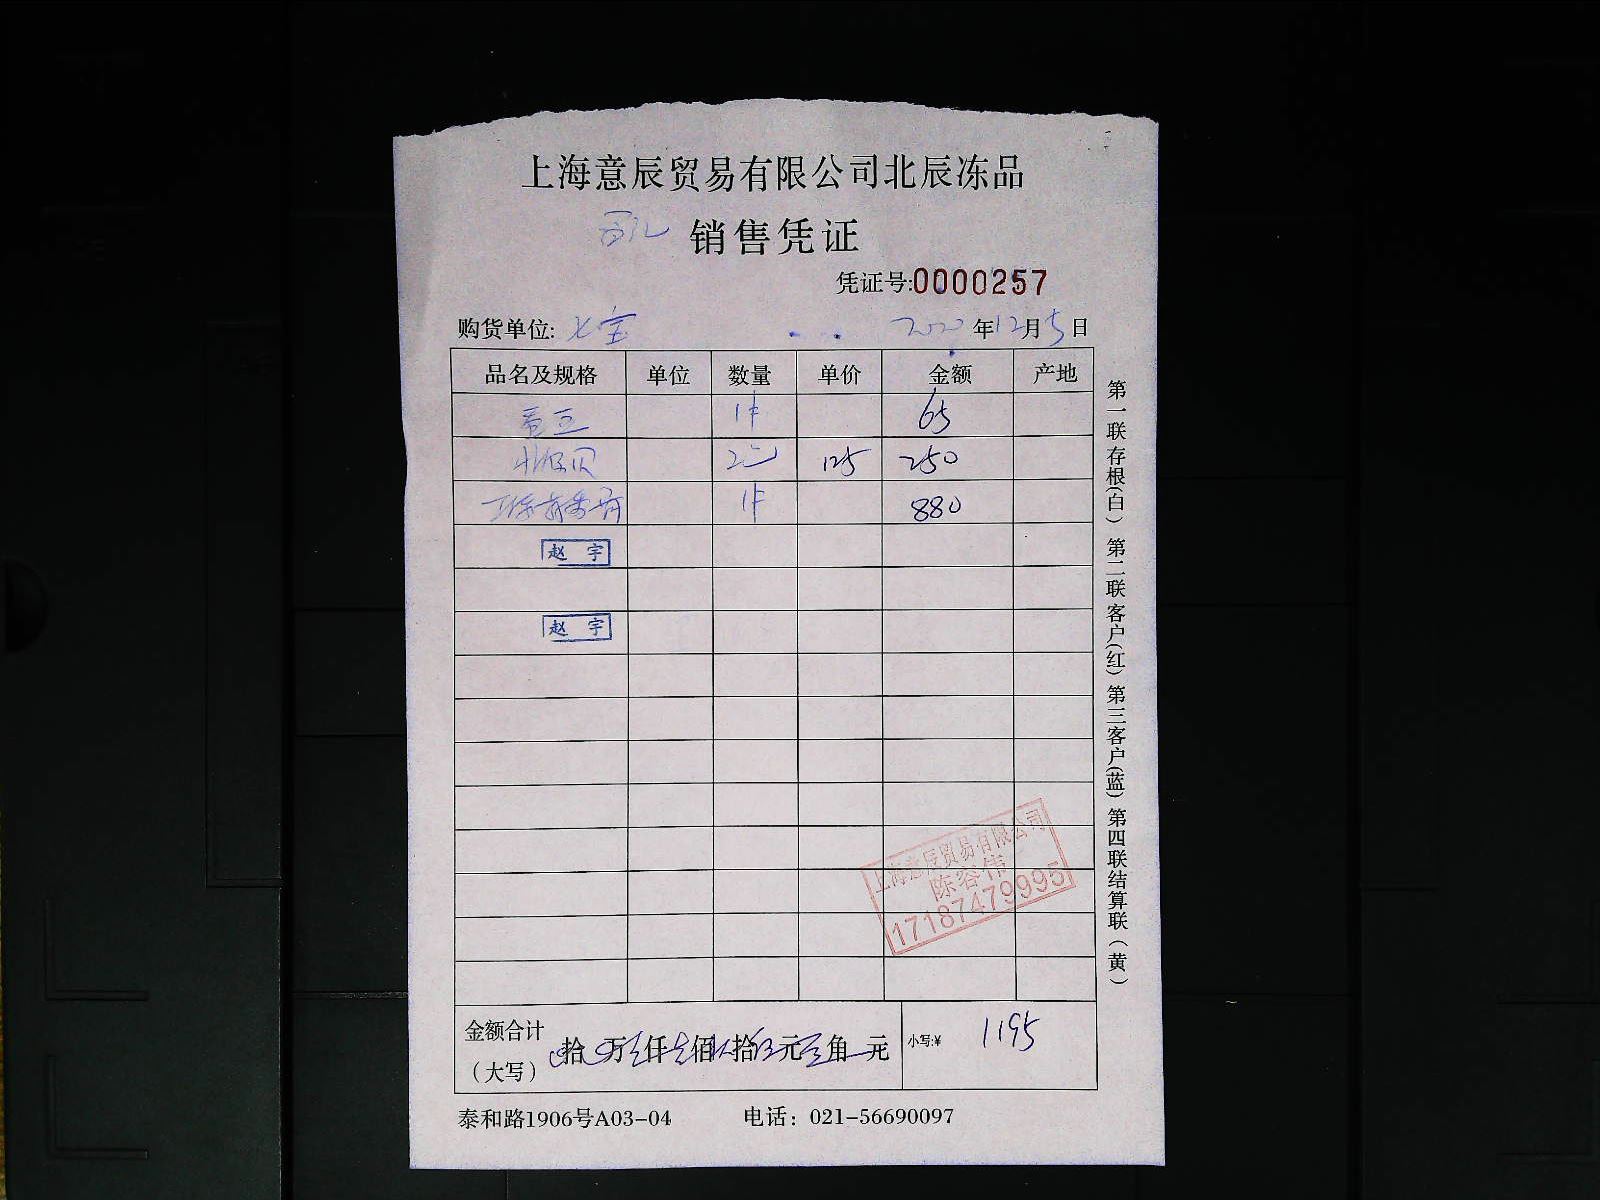 上海意辰贸易有限公司北辰冻品
销售凭证
凭证号:0000257
购货单位: 七宝 2020年12月5日
品名及规格 单位 数量 单价 金额 产地
1件 65
贝 2 125 250
1件 880
赵 宇
赵 宇
上海意辰贸易有限公司
陈容伟
17187479995
金额合计
(大写) 拾 万 仟 佰 拾 元 角 元 小写:¥ 1195
泰和路1906号A03-04 电话：021-56690097
第一联存根(白) 第二联客户(红) 第三客户(蓝) 第四联结算联(黄)